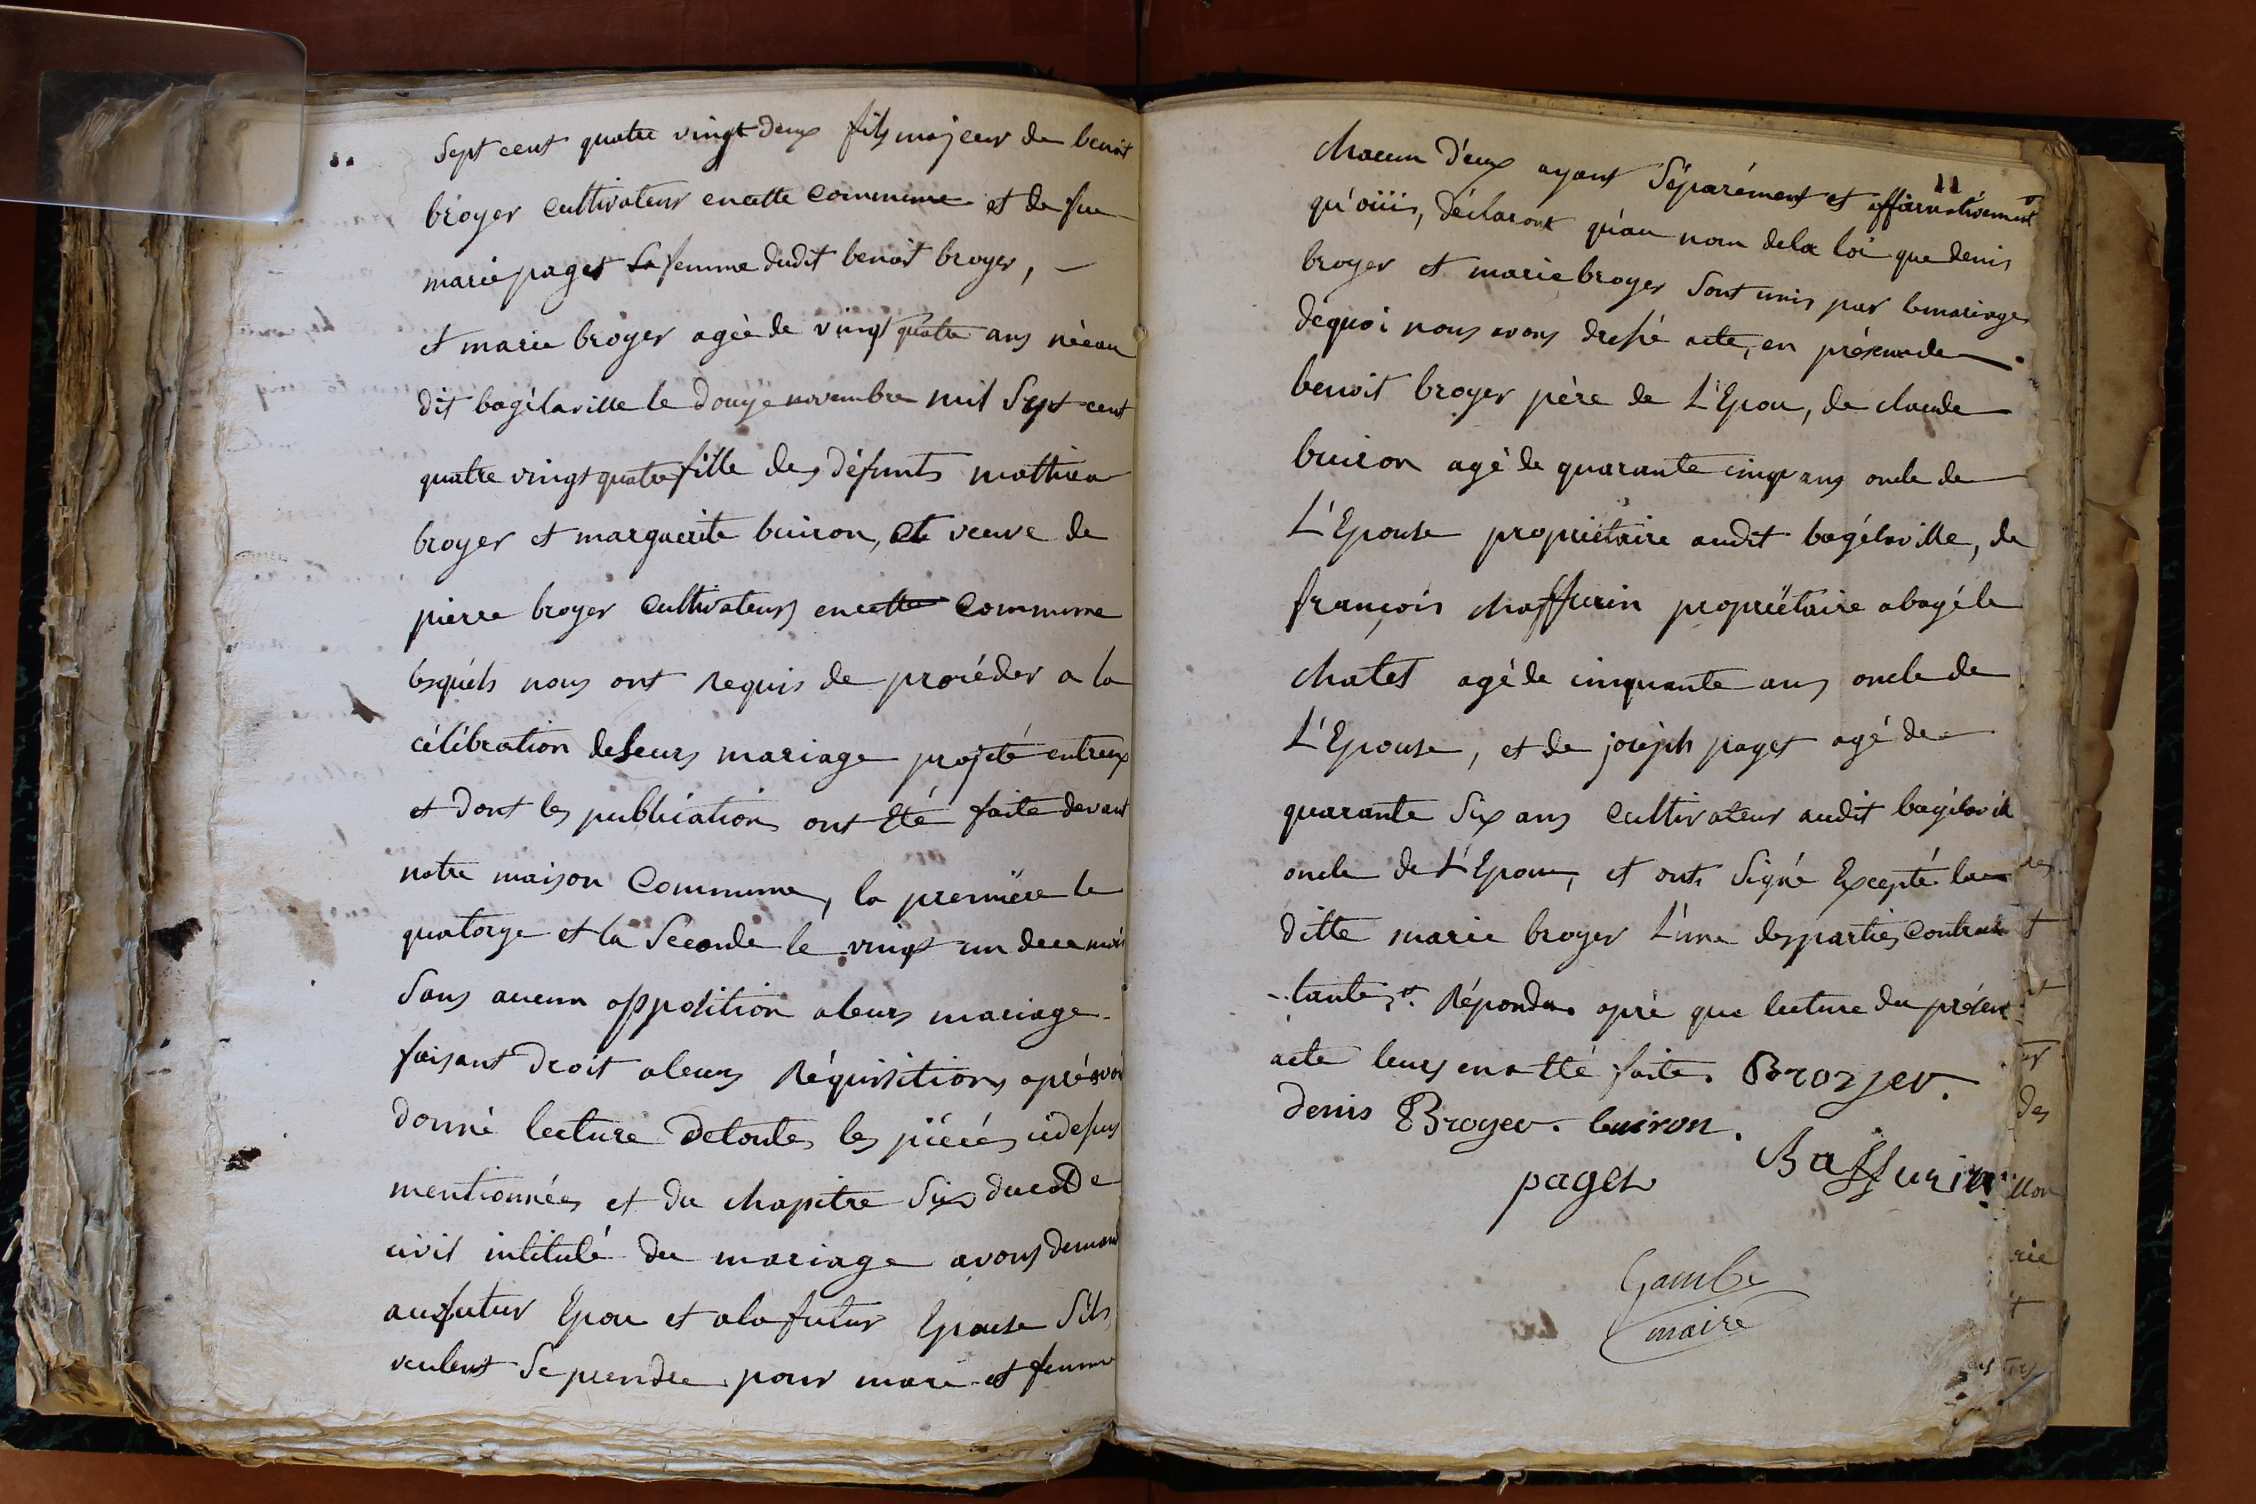 sept cent quatre vingt deux fils majeur de benoit
broyer cultivateur en cette commune et de fue
marie paget sa femme dudit benoit broyer, —
et marie broyer agèe de vingt quatre ans nèe au
dit bagélaville le douze novembre mil sept cent
quatre vingt quatre fille des défunts mathieu
broyer et marguerite buiron, et veuve de
pierre broyer cultivateurs en cette commune
lesquéls nous ont requis de procéder a la
célébration de leurs mariage projeté entreux
et dont les publications ont Eté faite devant
notre maison Commune, la premiere le
quatorze et la Seconde le vingt un de ce mois
Sans aucun opposition a leurs mariage
faisant droit a leurs Réquisitions aprés avoir
donné lecture de toutes les piéces cidesus
mentionnées et du chapitre Six du code
civil intitulé du mariage avons demandé
au futur Epou et a la futur Epouse S'ils
veulent Se prendre pour mari et femme
11
chacun d'eux ayant Séparément et affirmativement
qu'oüis, déclarons qu'au nom de la loi que denis
broyer et marie broyer Sont unis par le mariage
de quoi nous avons dressé acte, en présence de
benoit broyer père de L'Epou, de claude
buiron agé de quarante cinq ans oncle de
L'Epouse propriétaire audit bagélaville, de
françois chaffurin propriètaire a bagé le
chatel agé de cinquante ans oncle de
L'Epouse, et de joseph paget agé de
quarante Six ans cultivateur audit bagélaville
oncle de L'Epou, et ont Signé Excepté la
ditte marie broyer L'une des parties contrac
-tante, Répondu aprè que lecture du présent
acte leurs en a tté faite. Broyer.
denis Broyer. buiron.
paget
Chaffurin
Gambe
maire